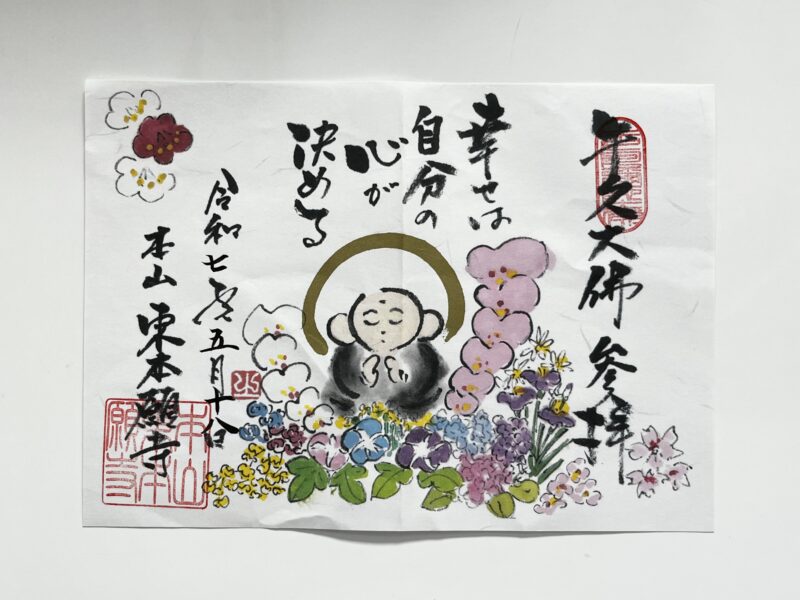 牛久大佛参拝
幸せは
自分の
心が
決める
令和七年五月十八日
本山 東本願寺
本山
本願寺